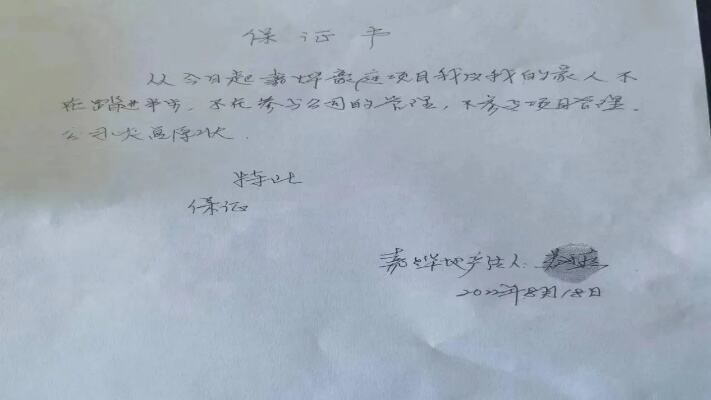 保证书
从今日起嘉烨豪庭项目我及我的家人不
在踏进半步，不在参与公司的管理，不参与项目管理，
公司
特此
保证
嘉烨地产法人
2022年8月18日